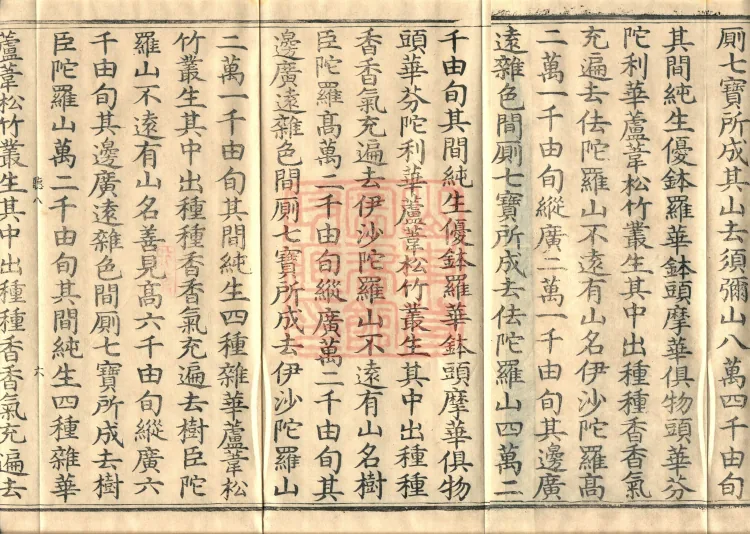 厠七寶所成其山去須彌山八萬四千由旬
其間純生優鉢羅華鉢頭摩華俱物頭華芬
陀利華蘆葦松竹叢生其中出種種香香氣
充遍去佉陀羅山不遠有山名伊沙陀羅高
二萬一千由旬縱廣二萬一千由旬其邊廣
遠雜色間厠七寶所成去佉陀羅山四萬二
千由旬其間純生優鉢羅華鉢頭摩華俱物
頭華芬陀利華蘆葦松竹叢生其中出種種
香香氣充遍去伊沙陀羅山不遠有山名樹
臣陀羅高萬二千由旬縱廣萬二千由旬其
邊廣遠雜色間厠七寶所成去伊沙陀羅山
二萬一千由旬其間純生四種雜華蘆葦松
竹叢生其中出種種香香氣充遍去樹臣陀
羅山不遠有山名善見高六千由旬縱廣六
千由旬其邊廣遠雜色間厠七寶所成去樹
臣陀羅山萬二千由旬其間純生四種雜華
蘆葦松竹叢生其中出種種香香氣充遍去
八 六